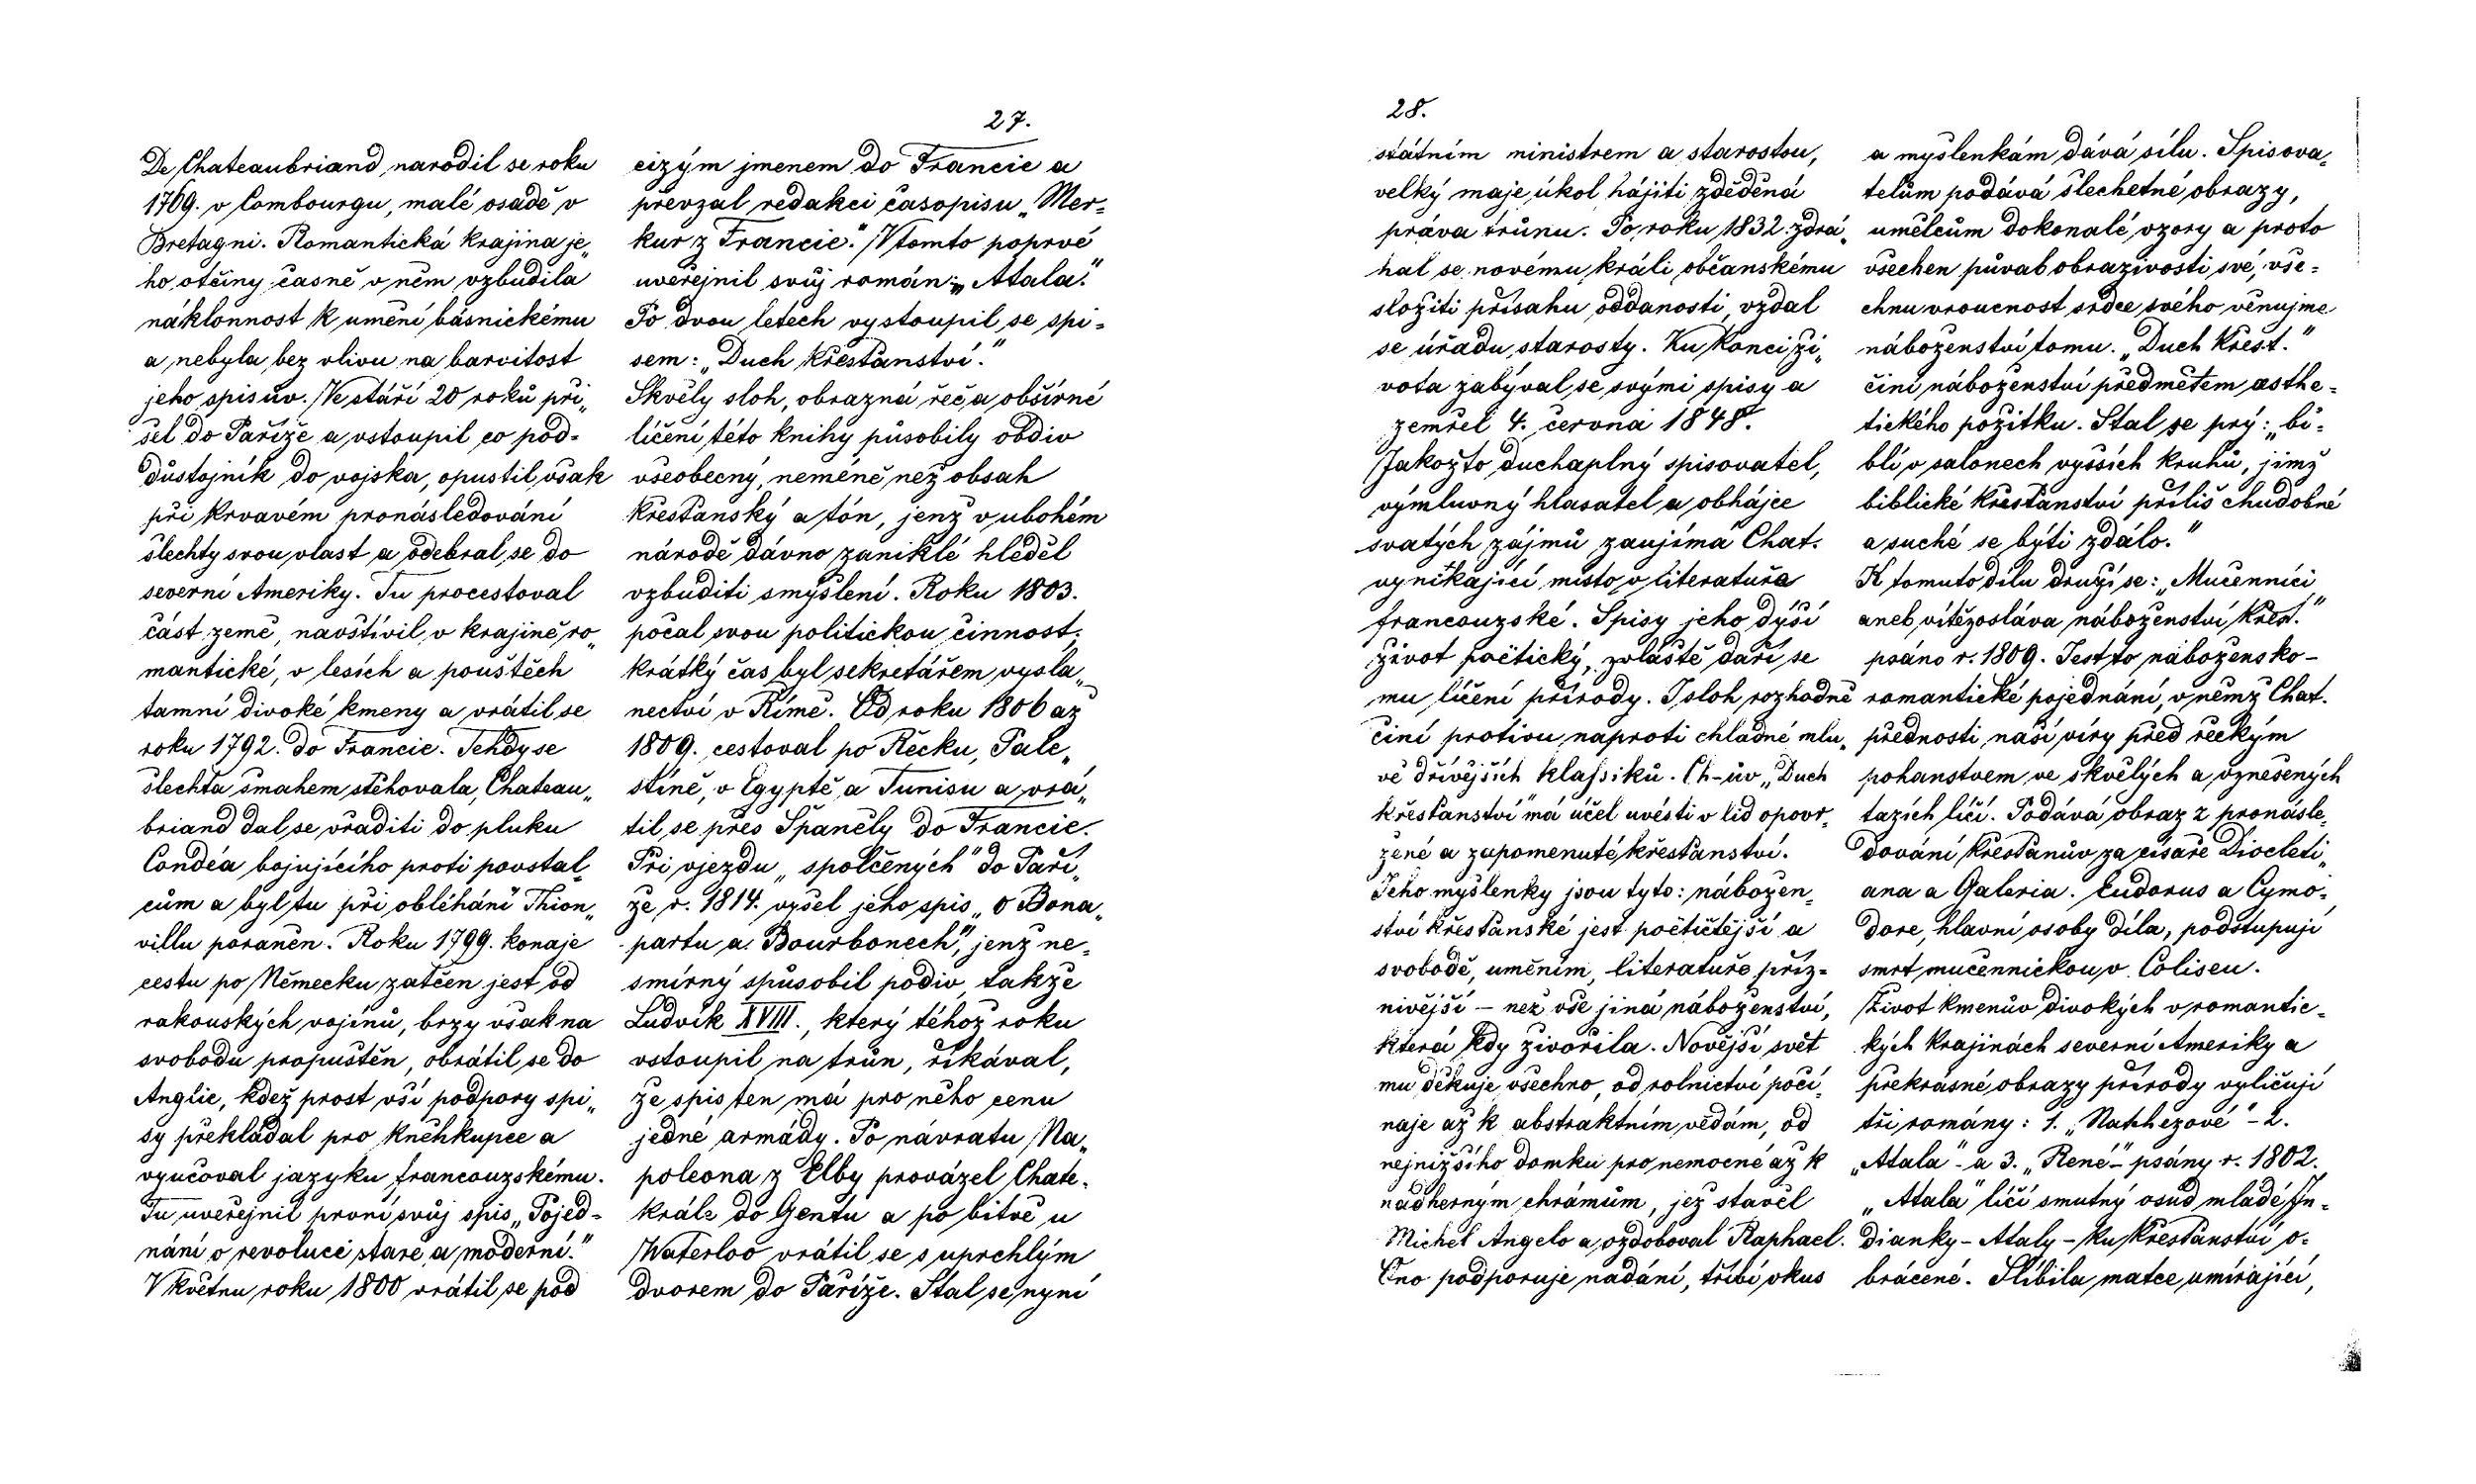 27.
De Chateaubriand narodil se roku
1769. v Combourgu, malé osadě v
Bretagni. Romantická krajina je„
ho otčiny časně v něm vzbudila
náklonnost k umění básnickému
a nebyla bez vlivu na barvitost
jeho spisův. Ve stáří 20 roků při„
šel do Paříže a vstoupil co pod=
důstojník do vojska, opustil však
při krvavém pronásledování
šlechty svou vlast a odebral se do
severní Ameriky. Tu procestoval
část země, navštívil v krajině ro„
mantické, v lesích a pouštěch
tamní divoké kmeny a vrátil se
roku 1792. do Francie. Tehdy se
šlechta šmahem stěhovala, Chateau„
briand dal se vřaditi do pluku
Condéa bojujícího proti povstal„
cům a byl tu při obléhání Thion„
villu poraněn. Roku 1799. konaje
cestu po Německu zatčen jest od
rakouských vojínů, brzy však na
svobodu propuštěn, obrátil se do
Anglie, kdež prost vší podpory spi„
sy překládal pro kněhkupce a
vyučoval jazyku francouzskému.
Tu uveřejnil první svůj spis „Pojed=
nání o revoluci staré a moderní."
V květnu roku 1800 vrátil se pod
cizým jmenem do Francie a
převzal redakci časopisu „Mer=
kur z Francie." V tomto poprvé
uveřejnil svůj román: „Atala."
Po dvou letech vystoupil se spi=
sem: „Duch křesťanství."
Skvělý sloh, obrazná řeč a obšírné
líčení této knihy působily obdiv
všeobecný, neméně než obsah
křesťanský a tón, jenž v ubohém
národě dávno zaniklé hleděl
vzbuditi smýšlení. Roku 1803.
počal svou politickou činnost;
krátký čas byl sekretářem vysla„
nectví v Římě. Od roku 1806 až
1809. cestoval po Řecku, Pale„
stině, v Egyptě, a Tunisu a vrá„
til se přes Španěly do Francie.
Při vjezdu „spolčených" do Paří„
že r. 1814. vyšel jeho spis „o Bona„
partu a Bourbonech", jenž ne=
smírný spůsobil podiv, takže
Ludvík XVIII., který téhož roku
vstoupil na trůn, říkával,
že spis ten má pro něho cenu
jedné armády. Po návratu Na„
poleona z Elby provázel Chate.
krále do Gentu a po bitvě u
Waterloo vrátil se s uprchlým
dvorem do Paříže. Stal se nyní
28.
státním ministrem a starostou,
velký maje úkol hájiti zděděná
práva trůnu. Po roku 1832. zdrá„
hal se novému králi občanskému
složiti přísahu oddanosti, vzdal
se úřadu starosty. Ku konci ži„
vota zabýval se svými spisy a
zemřel 4. června 1848.
Jakožto duchaplný spisovatel,
výmluvný hlasatel a obhájce
svatých zájmů zaujímá Chat.
vynikající místo v literatuře
francouzské. Spisy jeho dýší
život poëtický, zvláště daří se
mu líčení přírody. I sloh rozhodně
činí protivu naproti chladné mlu„
vě dřívějších klassiků. Ch-ův „Duch
křesťanství" má účel uvésti v lid opovr„
žené a zapomenuté křesťanství.
Jeho myšlenky jsou tyto: nábožen„
ství křesťanské jest poëtičtější a
svobodě, uměním, literatuře příz=
nivější – než vše jiná náboženství,
která kdy živořila. Novější svět
mu děkuje všechno, od rolnictví počí„
naje až k abstraktním vědám, od
nejnižšího domku pro nemocné až k
nádherným chrámům, jež stavěl
Michel Angelo a ozdoboval Raphael.
Ono podporuje nadání, tříbí vkus
a myšlenkám dává sílu. Spisova„
telům podává šlechetné obrazy,
umělcům dokonalé vzory a proto
všechen půvab obrazivosti své, vše=
chnu vroucnost srdce svého věnujme
náboženství tomu. „Duch křest."
činí náboženství předmětem æsthe=
tického požitku. Stal se prý: „bi=
blí v salonech vyšších kruhů, jimž
biblické křesťanství příliš chudobné
a suché se býti zdálo."
K tomuto dílu druží se: „Mučenníci
aneb vítězosláva náboženství křest."
psáno r. 1809. Jest to nábožensko–
romantické pojednání, v němž Chat.
přednosti naší víry před řeckým
pohanstvem ve skvělých a vznešených
tazích líčí. Podává obraz z pronásle„
dování křesťanův za císaře Diocleti„
ana a Galeria. Eudorus a Cymo=
dore, hlavní osoby díla, podstupují
smrt mučennickou v Coliseu.
Život kmenův divokých v romantic=
kých krajinách severní Ameriky a
překrásné obrazy přírody vyličují
tři romány: 1. „Natchezové" – 2.
„Atala" – a 3. „René" – psány r. 1802.
„Atala" líčí smutný osud mladé In=
dianky – Ataly – ku křesťanství o=
brácené. Slíbila matce umírající,